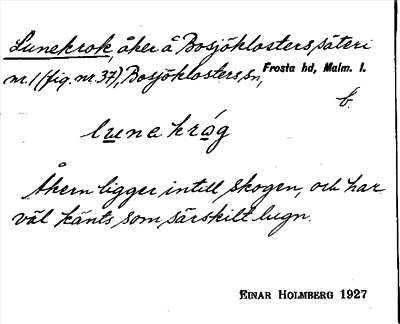 Lunekrok, åker å Bosjöklosters säteri
nr. 1 (fig. nr. 37), Bosjöklosters sn, Frosta hd, Malm. l.
b.
lunekråg
Åkern ligger intill skogen, och har
väl känts som särskilt lugn.
EINAR HOLMBERG 1927